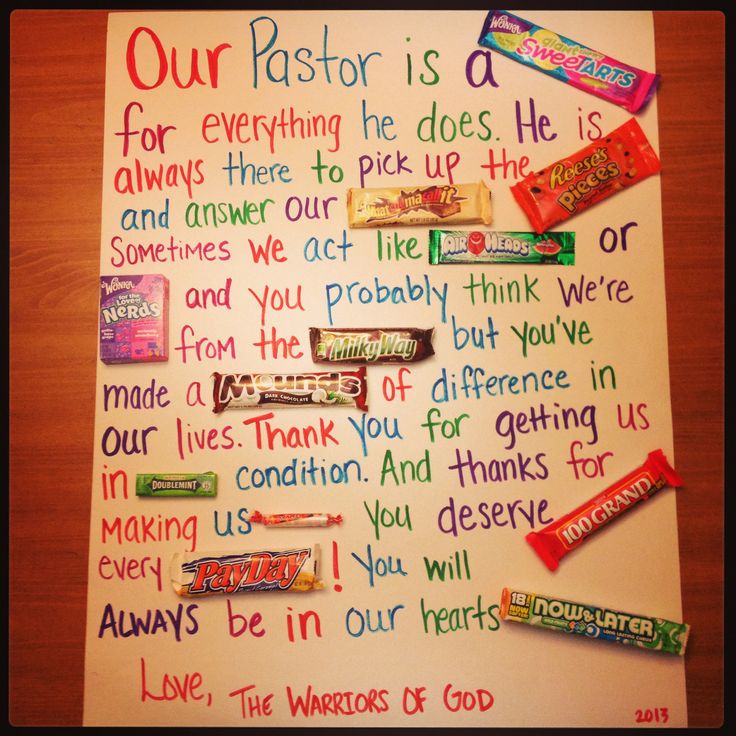 2013
Our Pastor is a WONKA giant chewy SWEETARTS
for everything he does. He is
always there to pick up the REESE'S PIECES
and answer our whatchamacallit
Sometimes we act like AIRHEADS or
WONKA for the Love of NERDS and you probably think we're
from the MilkyWay but you've
made a Mounds DARK CHOCOLATE of difference in
our lives. Thank you for getting us
in DOUBLEMINT condition. And thanks for
making us you deserve 100 GRAND
every PayDay ! You will
ALWAYS be in our hearts 18! NOW & LATER LONG LASTING CHEWS
Love, THE WARRIORS OF GOD
2013